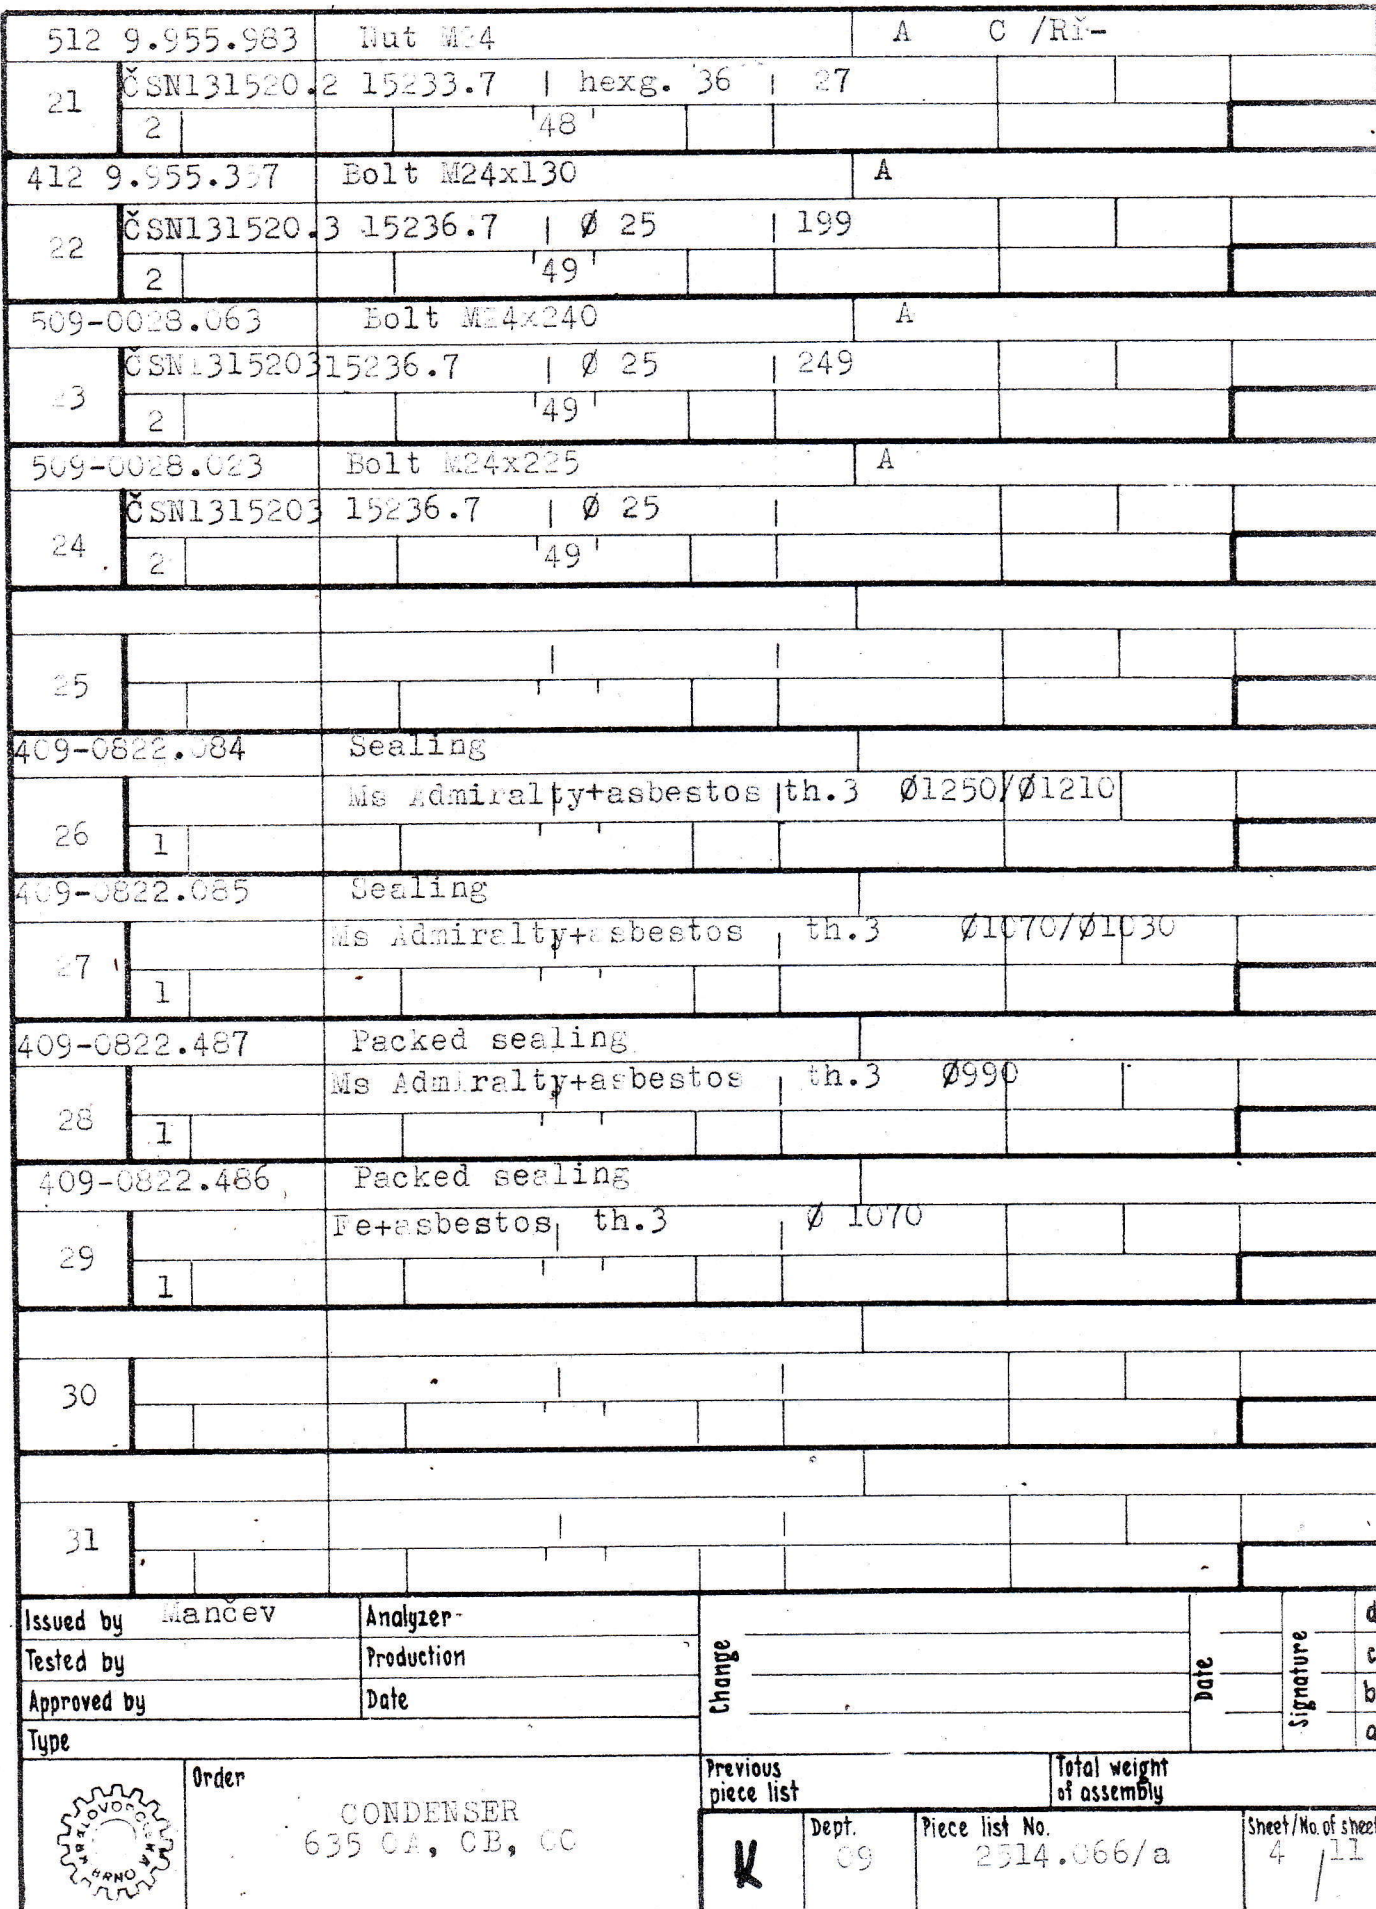 512 9.955.983 Nut M24 A C /Ří-
21 ČSN131520.2 15233.7 | hexg. 36 | 27
2 '48'
412 9.955.357 Bolt M24x130 A
22 ČSN131520.3 15236.7 | Ø 25 | 199
2 '49'
509-0028.063 Bolt M24x240 A
23 ČSN131520315236.7 | Ø 25 | 249
2 '49'
509-0028.023 Bolt M24x225 A
24 ČSN1315203 15236.7 | Ø 25
2 '49'
25
409-0822.084 Sealing
Ms Admiralty+asbestos th.3 Ø1250/Ø1210
26 1
409-0822.085 Sealing
Ms Admiralty+asbestos th.3 Ø1070/Ø1030
27 1
409-0822.487 Packed sealing
Ms Admiralty+asbestos th.3 Ø990
28 1
409-0822.486 Packed sealing
Fe+asbestos th.3 Ø 1070
29 1
30
31
Issued by Mančev Analyzer
Tested by Production
Approved by Date
Type
Change Date Signature
d
c
b
a
Order
CONDENSER
635 CA, CB, CC
Previous piece list
Total weight of assembly
K
Dept. 09
Piece list No. 2514.066/a
Sheet/No. of sheet 4 / 11
KRÁLOVOPOLSKÁ BRNO